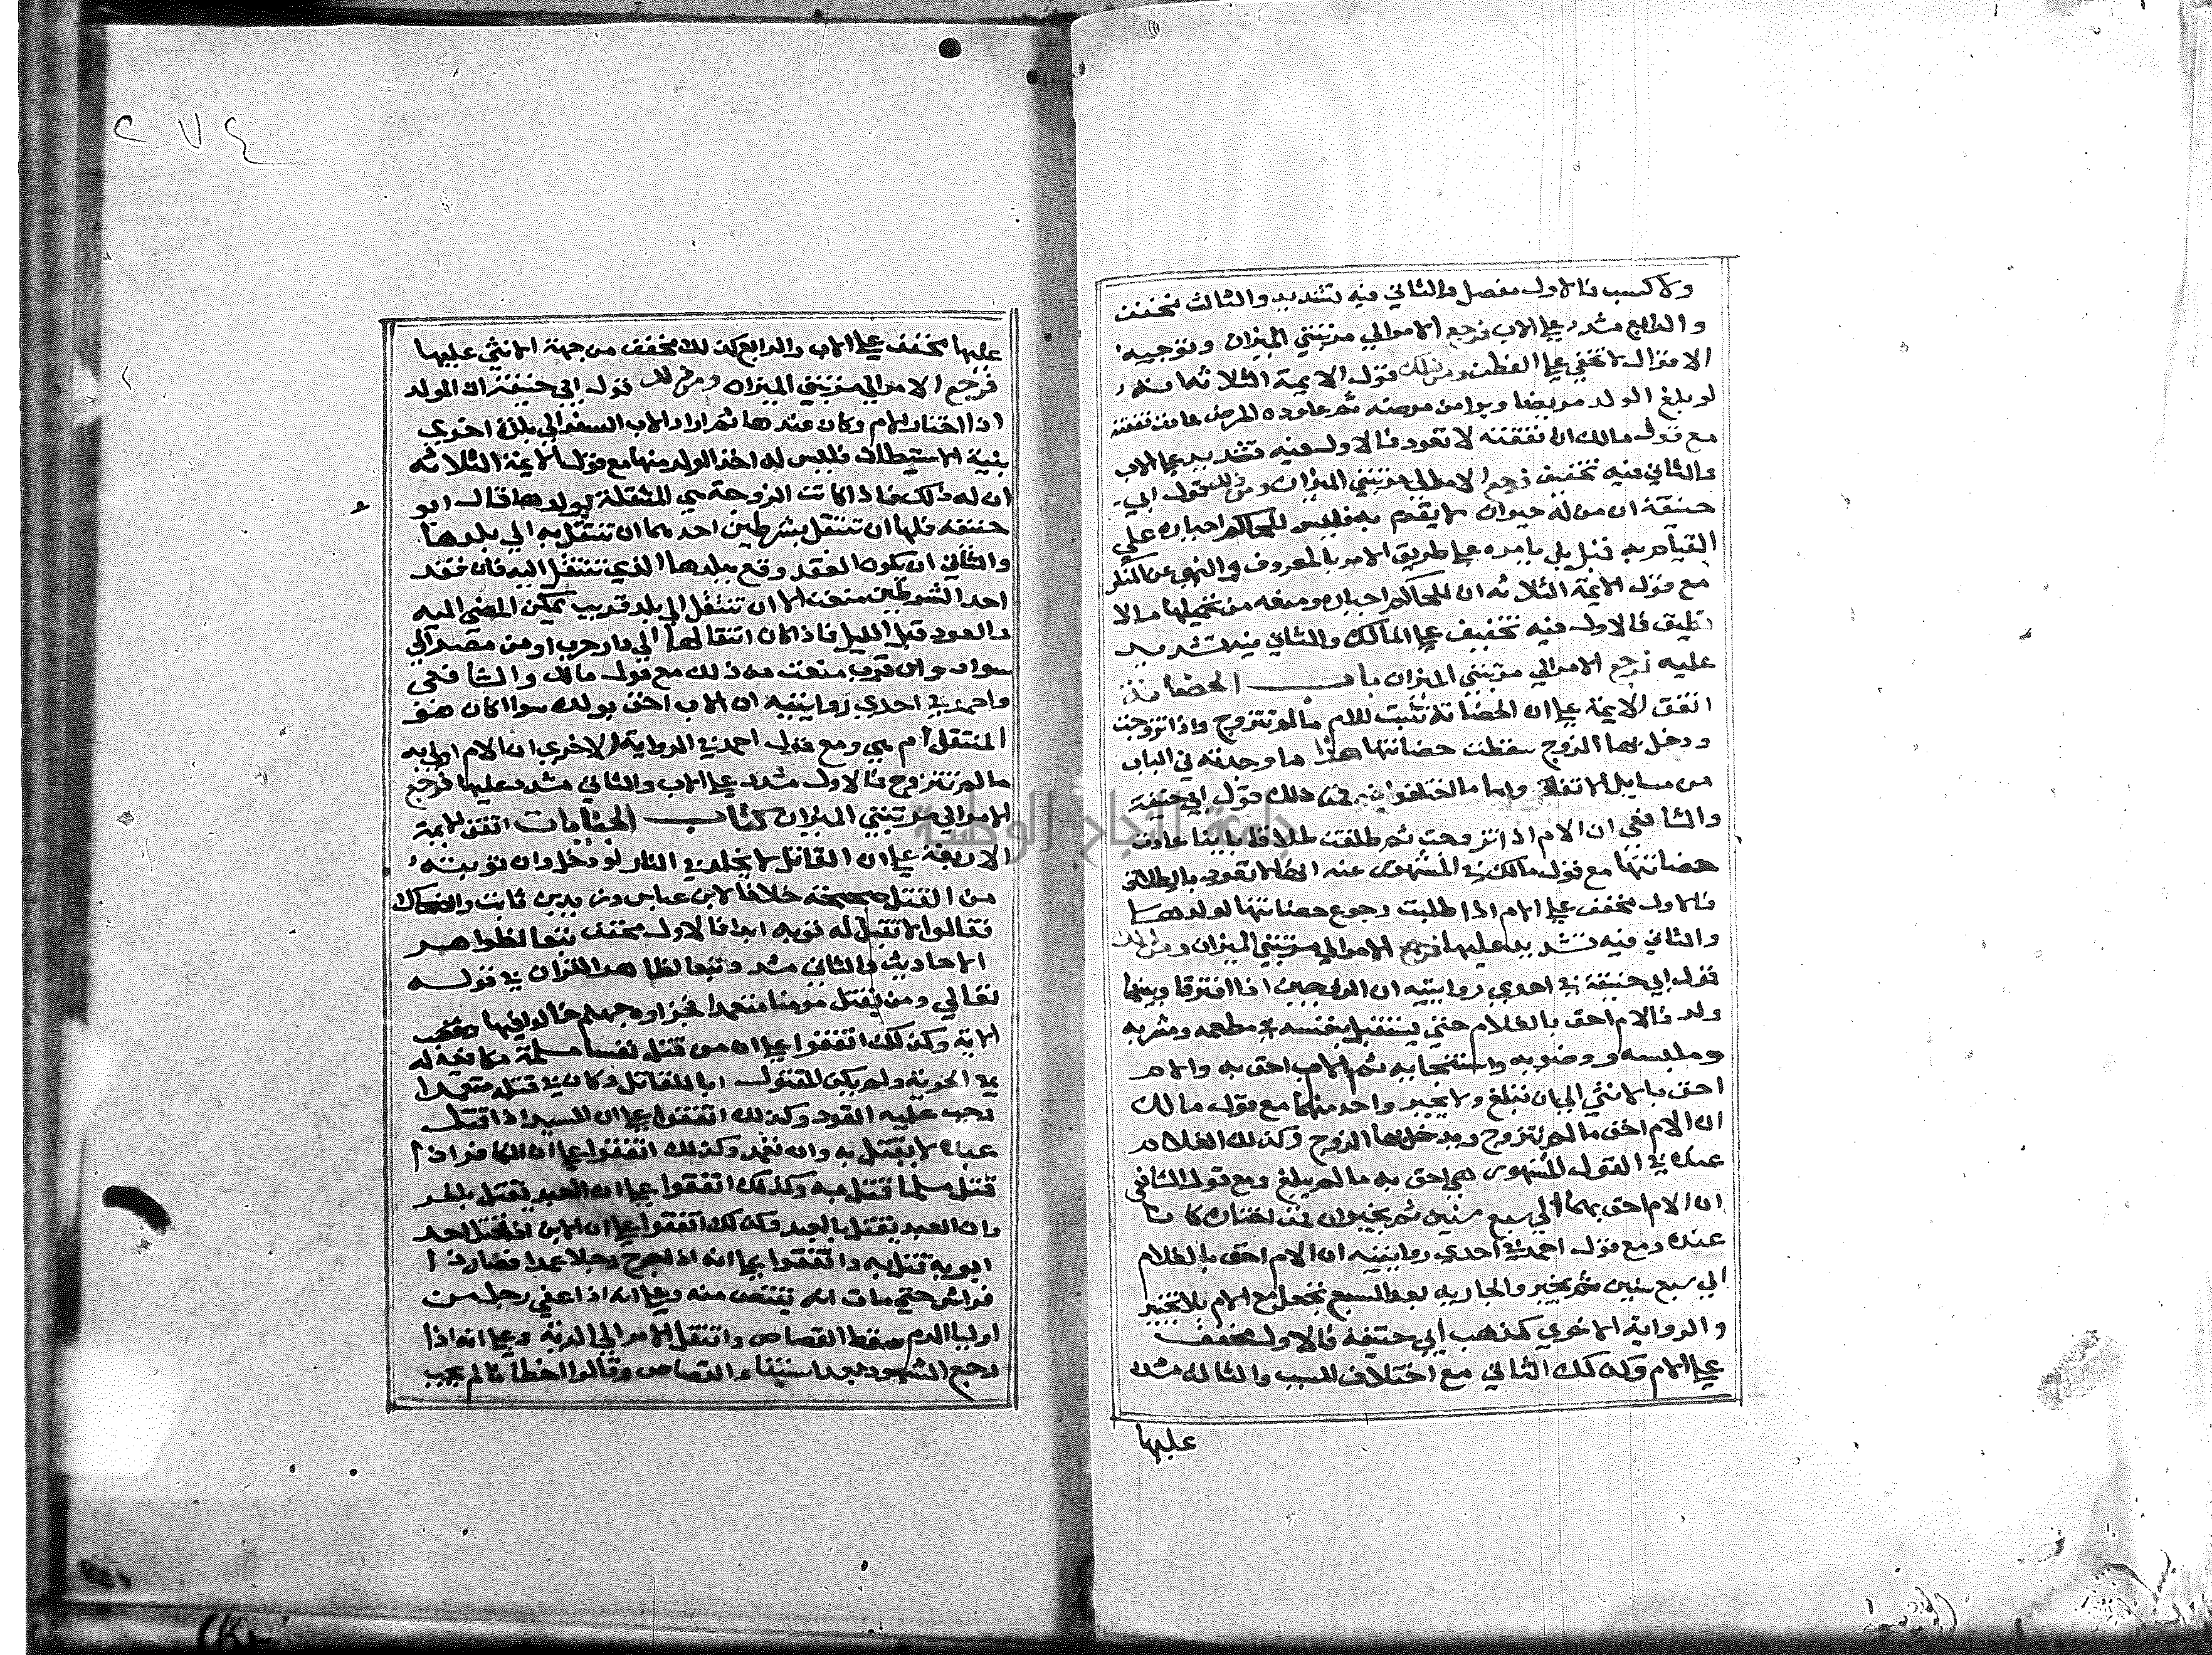 ولا كسب فالاول مفصل والثاني فيه تشديد والثالث مخفف
والرابع مشدد على الاب فرجع الامر الي مرتبتي الميزان وتوجيه
الاقوال لا تخفي على الفطن ومن ذلك قول الايمة الثلاثه انه
لو بلغ الولد مريضا وبرا من مرضه ثم عاوده المرض عادت نفقته
مع قول مالك ان نفقته لا تعود فالاول فيه تشديد على الاب
والثاني فيه تخفيف فرجع الامر الى مرتبتي الميزان ومن ذلك قول ابي
حنيفة ان من له حيوان لا يقوم به فليس للحاكم اجباره علي
القيام به قبل بل يامره على طريق الامر بالمعروف والنهي عن المنكر
مع قول الايمة الثلاثه ان للحاكم اجباره ومنعه من تحميلها ما لا
تطيق فالاول فيه تخفيف على المالك والثاني فيه تشديد
عليه فرجع الامر الي مرتبتي الميزان باب الحضانة
اتفق الايمة على ان الحضانة تثبت للام مالم تتزوج واذا تزوجت
ودخل بها الزوج سقطت حضانتها هذا ما وجدته في الباب
من مسايل الاتفاق واما ما اختلفوا فيه فمن ذلك قول ابي حنيفة
والشافعي ان الام اذا تزوجت ثم طلقت طلاقا باينا عادت
حضانتها مع قول مالك في المشهور عنه انها لا تعود بالطلاق
فالاول مخفف على الام اذا طلبت رجوع حضانتها لولدها
والثاني فيه تشديد عليها فرجع الامر الي مرتبتي الميزان ومن ذلك
قول ابي حنيفة في احدي روايتيه ان الزوجين اذا افترقا وبينهما
ولد فالام احق بالغلام حتي يستقبل بنفسه في مطعمه ومشربه
وملبسه ووضوبه واستنجابه ثم الاب احق به والام
احق بالانثي الي ان تبلغ ولا يخير واحد منهما مع قول مالك
ان الام احق مالم تتزوج ويدخل بها الزوج وكذلك الغلام
عنده في القول المشهور هي احق به مالم يبلغ ومع قول الشافعي
ان الام احق بهما الي سبع سنين ثم يخيران فمن اختاره كانا
عنده ومع قول احمد في احدي روايتيه ان الام احق بالغلام
الي سبع سنين ثم يخير والجاريه بعد السبع تجعل مع الام بلا تخيير
والرواية الاخري كمذهب ابي حنيفة فالاول مخفف
على الام وكذلك الثاني مع اختلاف السبب والثالث مشدد
عليها
٢٧٤
عليها مخفف على الاب والرابع كذلك مخفف من جهة الانثي عليها
فرجع الامر الي مرتبتي الميزان ومن ذلك قول ابي حنيفة ان الولد
اذا اختار الام وكان عندها ثم اراد الاب السفر الي بلدة اخري
بنية الاستيطان فليس له اخذ الولد منها مع قول الايمة الثلاثه
ان له ذلك فاذا كانت الزوجة هي المنتقلة بولدها قال ابو
حنيفه فلها ان تنتقل بشرطين احدهما ان تنتقل به الي بلدها
والثاني ان يكون العقد وقع ببلدها الذي تنتقل اليه فان فقد
احد الشرطين منعت الا ان تنتقل الي بلد قريب يمكن المضي اليه
والعود قبل الليل فاذا كان انتقالها الي دار حرب او من مصر الي
سواد وان قرب منعت من ذلك مع قول مالك والشافعي
واحمد في احدي روايتيه ان الاب احق بولده سوا كان هو
المنتقل ام هي ومع قول احمد في الرواية الاخري ان الام اولى به
مالم تتزوج فالاول مشدد على الاب والثاني مشدد عليها فرجع
الامر الي مرتبتي الميزان كتاب الجنايات اتفق الايمة
الاربعة على ان القاتل لا يخلد في النار لو دخل وان توبته
من القتل صحيحة خلافا لابن عباس وزيد بن ثابت والضحاك
فقالوا لا تقبل له توبه ابدا فالاول مخفف تبعا لظواهر
الاحاديث والثاني مشدد تبعا لظاهر القران في قوله
تعالي ومن يقتل مومنا متعمدا فجزاوه جهنم خالدا فيها وغضب
الاية وكذلك اتفقوا على ان من قتل نفسا مسلمة مكافئة له
في الحرية ولم يكن المقتول ابنا للقاتل وكان في قتله متعمدا
وجب عليه القود وكذلك اتفقوا على ان السيد اذا قتل
عبده لا يقتل به وان تعمد وكذلك اتفقوا على ان الكافر اذا
قتل مسلما قتل به وكذلك اتفقوا على ان العبد يقتل بالحر
وان العبد يقتل بالعبد وكذلك اتفقوا على ان الابن اذا قتل احد
ابويه قتل به واتفقوا على انه اذا جرح رجلا عمدا فصار ذا
فراش حتي مات انه يقتص منه وعلى انه اذا عفي رجل من
اوليا الدم سقط القصاص وانتقل الامر الي الدية وعلى انه اذا
رجع الشهود بعد استيفاء القصاص وقالوا اخطانا لم يجب
جامعة النجاح الوطنية